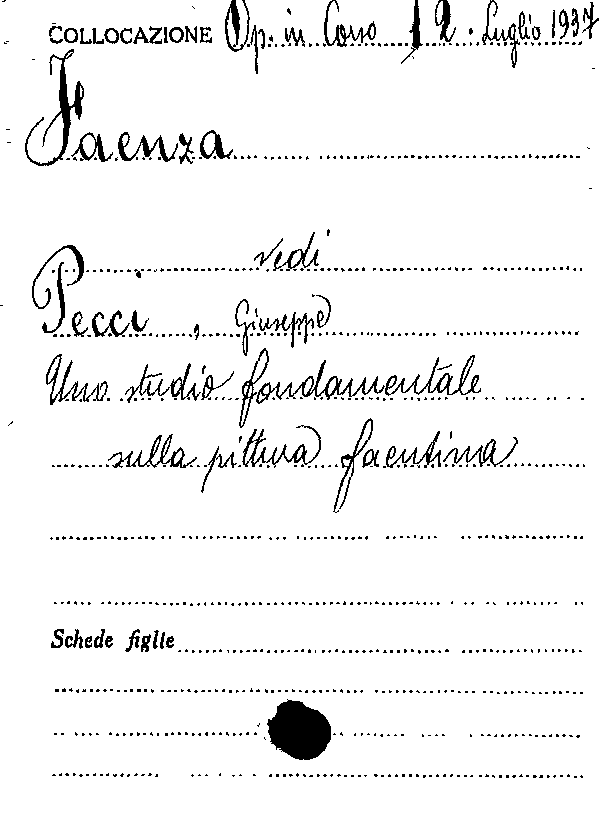 COLLOCAZIONE Op. in Corso 12. Luglio 1937
Faenza
vedi
Pecci, Giuseppe
Uno studio fondamentale
sulla pittura faentina
Schede figlie